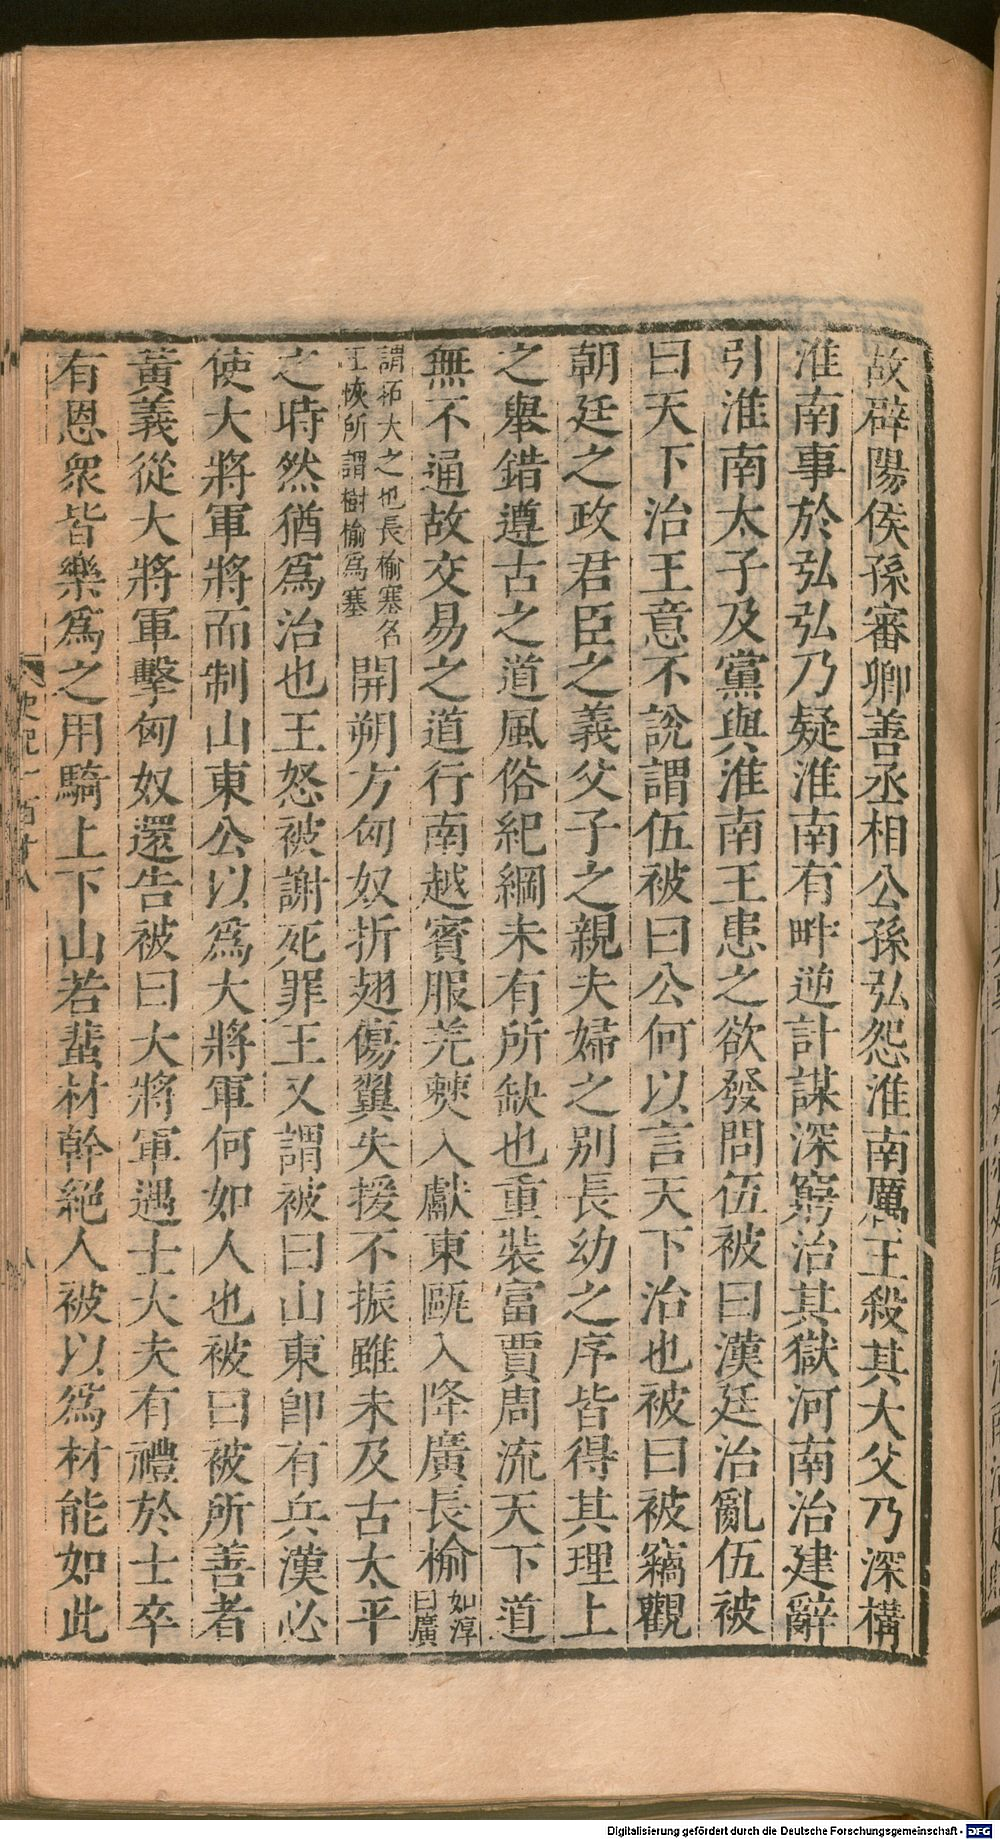 故辟陽侯孫審卿善丞相公孫弘怨淮南厲王殺其大父乃深構
淮南事於弘弘乃疑淮南有畔逆計謀深窮治其獄河南治建辭
引淮南太子及黨與淮南王患之欲發問伍被曰漢廷治亂伍被
曰天下治王意不說謂伍被曰公何以言天下治也被曰被竊觀
朝廷之政君臣之義父子之親夫婦之別長幼之序皆得其理上
之舉錯遵古之道風俗紀綱未有所缺也重裝富賈周流天下道
無不通故交易之道行南越賓服羌僰入獻東甌入降廣長榆如淳曰廣
謂拓大之也長榆塞名王恢所謂樹榆爲塞開朔方匈奴折翅傷翼失援不振雖未及古太平
之時然猶爲治也王怒被謝死罪王又謂被曰山東卽有兵漢必
使大將軍將而制山東公以爲大將軍何如人也被曰被所善者
黃義從大將軍擊匈奴還告被曰大將軍遇士大夫有禮於士卒
有恩眾皆樂爲之用騎上下山若蜚材幹絕人被以爲材能如此
史記一百十八
八
Digitalisierung gefördert durch die Deutsche Forschungsgemeinschaft - DFG